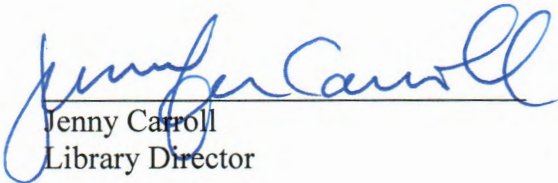 Jennifer Carroll
Jenny Carroll
Library Director